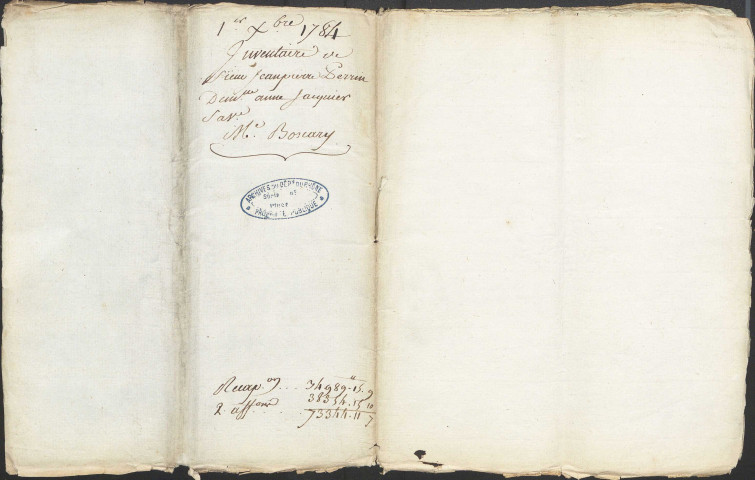 1er Xbre 1784
Inventaire de
Sieur Jeanpierre Perrin
Demlle anne Jacquier
Sa Ve
Me Boscary
ARCHIVES DU DÉPT DU RHÔNE
PROPRIÉTÉ PUBLIQUE
Recap.on . . . 34989 " 15. 9
2. aff . . . 38354. 15 10
73344. 11 7